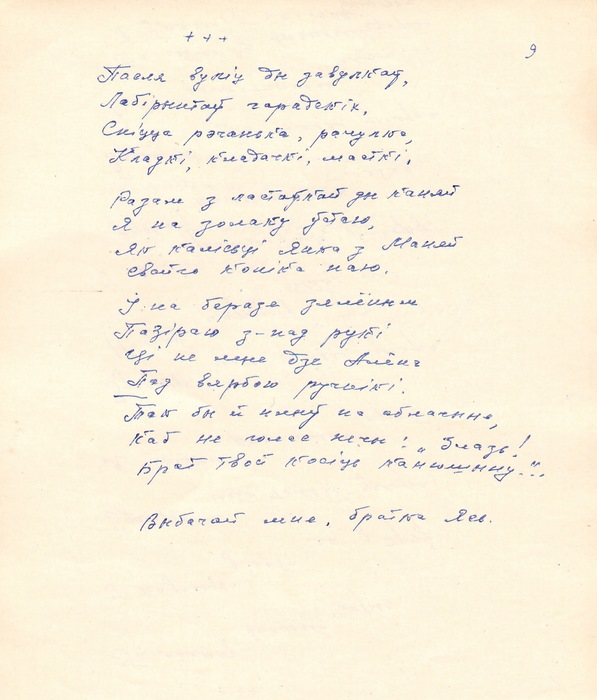 + + +
9
Пасля вуліц ды завулкаў,
Лабірынтаў гарадскіх,
Сніцца рэчанька, рачулка,
Кладкі, кладачкі, масткі.
Разам з ластаўкай ды каняй
Я на золаку ўстаю,
Як калісьці Янка з Маняй
Свайго коніка паю.
І на беразе зялёным
Пазіраю з-пад рукі
Ці не мне дзе Алёна
Пад вярбою ручнікі.
Так бы й на аблачыне,
Каб не голас нечы: „Злазь!
Брат твой косіць канюшыну."..
Выбачай мне, братка Ясь.